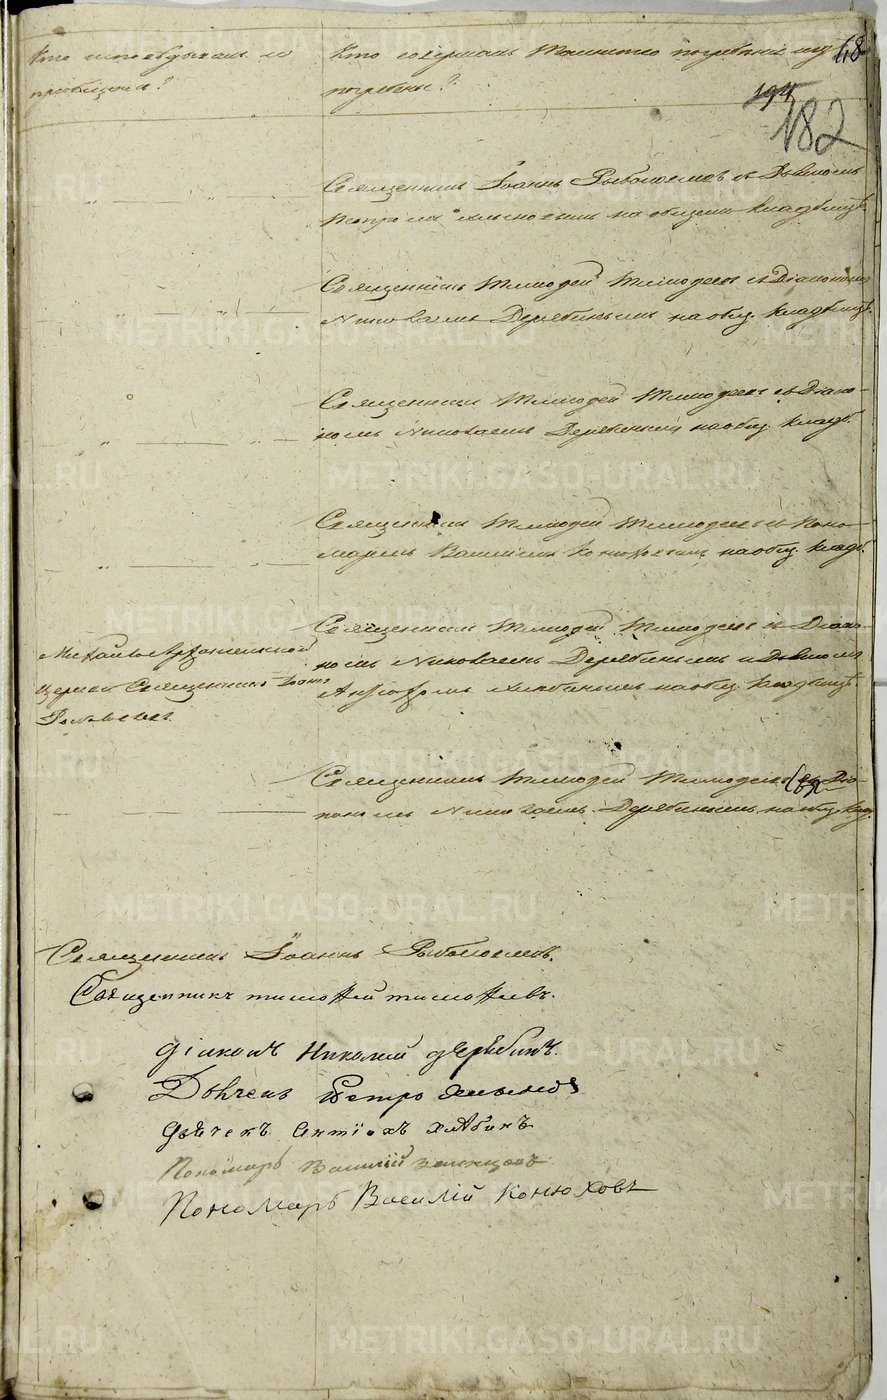 Кто исповѣдывалъ и
пріобщалъ?
Кто совершалъ Таинство погребенія и гдѣ
погребены?
48
194
182
Священникъ Іоаннъ Рыболовлевъ съ Дьячкомъ
Петромъ на общемъ кладбищѣ.
Священникъ Тимофей Тимофеевъ съ Діакономъ
Николаемъ Дерябинымъ на общ. кладбищѣ.
Священникъ Тимофей Тимофеевъ съ Діако-
номъ Николаемъ Дерябинымъ на общ. кладб.
Священникъ Тимофей Тимофеевъ съ Поно-
маремъ Василіемъ Конюховымъ на общ. кладб.
Михайло-Архангельской
церкви Священникъ Іоаннъ
Священникъ Тимофей Тимофеевъ съ Діако-
номъ Николаемъ Дерябинымъ и Дьячкомъ
Антіохомъ Хлябинымъ на общ. кладбищѣ.
Священникъ Тимофей Тимофеевъ съ Діа-
кономъ Николаемъ Дерябинымъ на общ. клад.
Священникъ Іоаннъ Рыболовлевъ.
Священникъ Тимоѳей Тимоѳеевъ.
Діаконъ Николай Дерябинъ.
Дьячекъ Петръ
Дьячекъ Антіохъ Хлябинъ
Пономарь Василій
Пономарь Василій Конюховъ
METRIKI.GASO-URAL.RU